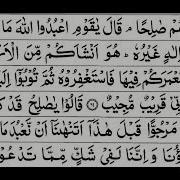 هُمْ صٰلِحًا ۘ قَالَ يٰقَوْمِ اعْبُدُوا اللّٰهَ مَا
اِلٰهٍ غَيْرُهٗ ؕ هُوَ اَنْشَاَكُمْ مِّنَ الْاَ
تَعْمَرَكُمْ فِيْهَا فَاسْتَغْفِرُوْهُ ثُمَّ تُوْبُوْۤا اِلَيْ
يْ قَرِيْبٌ مُّجِيْبٌ ۝۶۱ قَالُوْا يٰصٰلِحُ قَدْ
مَرْجُوًّا قَبْلَ هٰذَاۤ اَتَنْهٰىنَاۤ اَنْ نَّعْبُدَ مَا
ؤُنَا وَاِنَّنَا لَفِيْ شَكٍّ مِّمَّا تَدْعُوْ